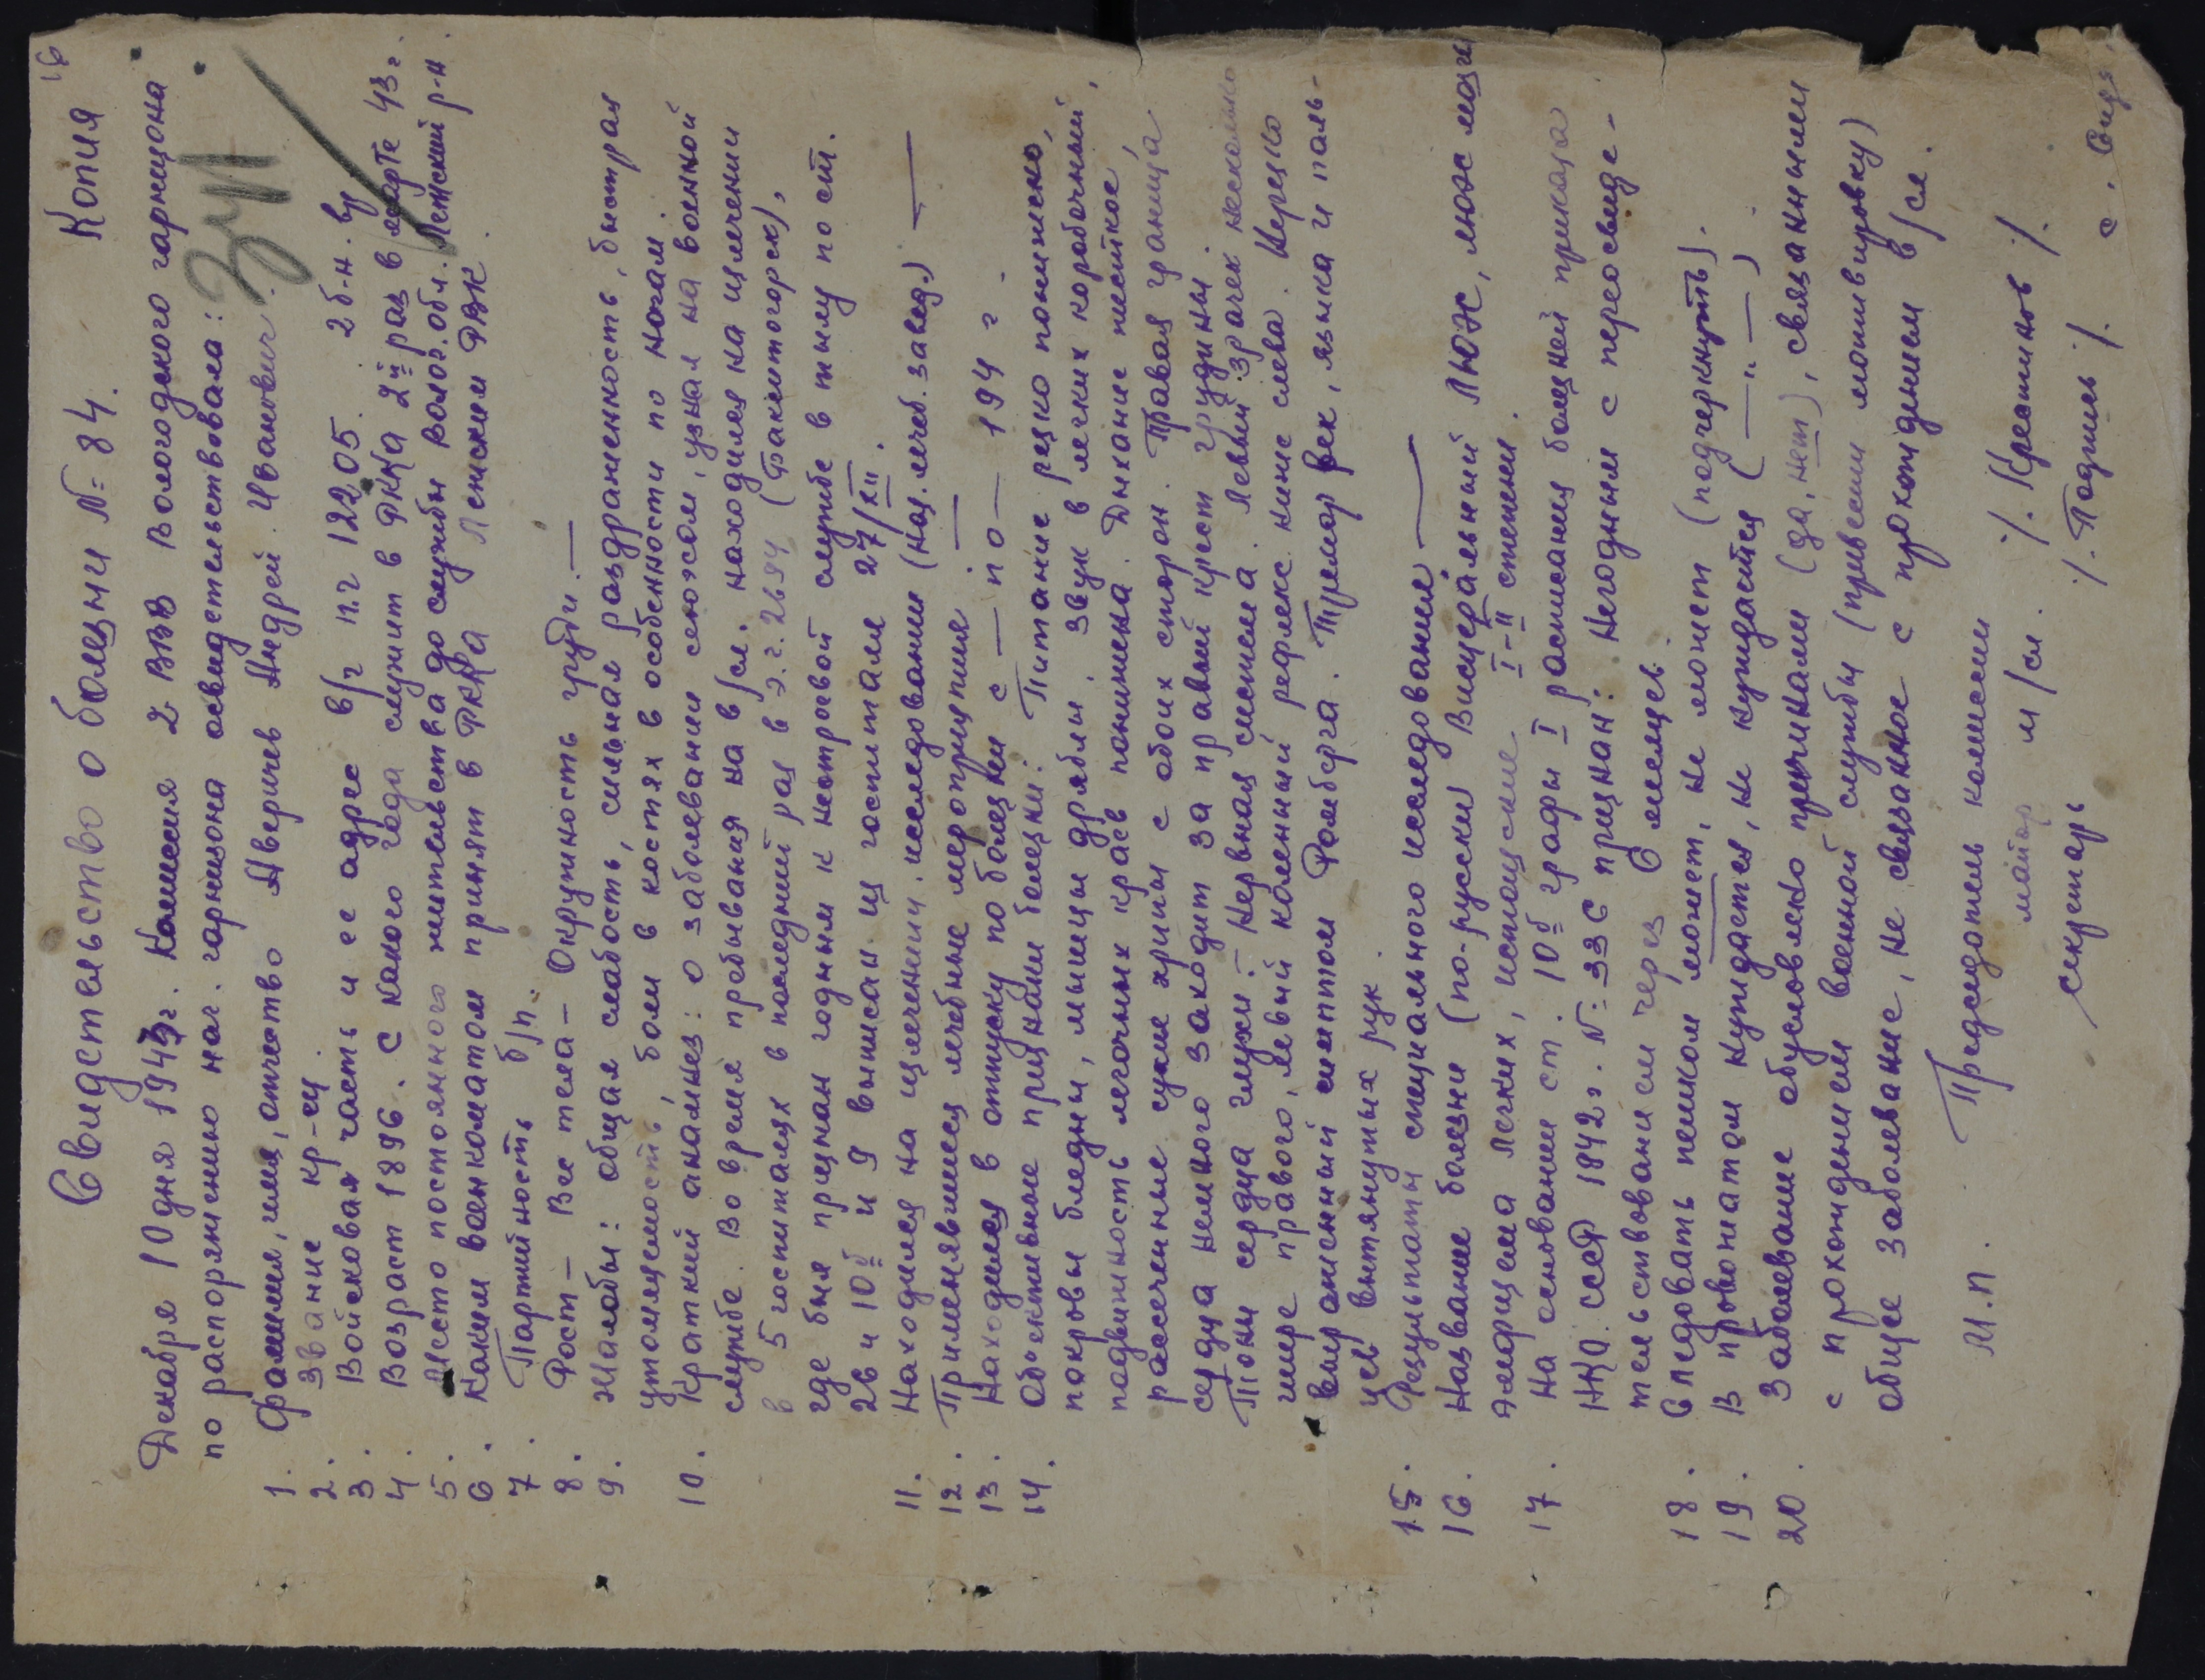 16
Свидетельство о болезни №: 84. Копия
Декабря 10 дня 1943г. Комиссия 2 ВВВ Вологодского гарнизона
по распоряжению нач. гарнизона освидетельствовала:
1. Фамилия, имя, отчество Аверичев Андрей Иванович.
2. Звание кр-ец.
3. Войсковая часть и ее адрес в/ч п.ч 12205. 2б-н.
4. Возраст 1896. С какого года служит в РККА 2й раз в марте 43г.
5. Место постоянного жительства до службы Волог. обл. Летский р-н.
6. Каким военкоматом принят в РККА Ленским РВК.
7. Партийность б/п.
8. Рост — Вес тела — Окружность груди. —
9. Жалобы: общая слабость, сильная раздраженность, быстрая
утомляемость, боли в костях в особенности по ногам.
10. Краткий анамнез: о заболевании сеюжом, узнал на военной
службе. Во время пребывания на в/сл. находился на излечении
в 5 госпиталях в последний раз в э.г. 2694 (Факитогорск),
где был признан годным к нестроевой службе в тылу по ст.
2в и 10б и 9 выписан из госпиталя 27/XII.
11. Находился на излечении. исследовании (наз. лечеб. завед.) —
12. Применявшиеся лечебные мероприятия —
13. Находился в отпуску по болезни с — по — 194 г.
14. Объективные признаки болезни: Питание резко понижено,
покровы бледны, мышцы дряблы. Звук в легких коробочный,
подвижность легочных краев понижена. Дыхание жесткое,
рассеченные сухие хрипы с обоих сторон. Правая граница
сердца немного заходит за правый крест грудины.
Тоны сердца глухи. — Нервная система. Левый зрачек несколько
шире правого, левый коленный рефлекс ниже слева. Нерезко
выраженный симптом Ромберга. Тремор век, языка и паль-
цев вытянутых рук.
15. Результаты специального исследования —
16. Название болезни (по-русски) Висцеральный люэс, люэс мозга
эмфизема легких, истощение I-II степени.
17. На основании ст. 10б графы I расписания болезней приказа
НКО СССР 1942г. №: 336 признан: Негодным с переосвиде-
тельствованием через 6 месяцев.
18. Следовать пешком может, не может (подчеркнуть).
19. В провожатом нуждается, не нуждается ( — " — ).
20. Заболевание обусловлено причинами (да, нет), связанными
с прохождением военной службы (привести мотивировку)
общее заболевание, не связанное с прохождением в/сл.
М.п. Председатель комиссии
майор м/сл. /. Креатинов /.
секретарь /. Подпись /.
с.